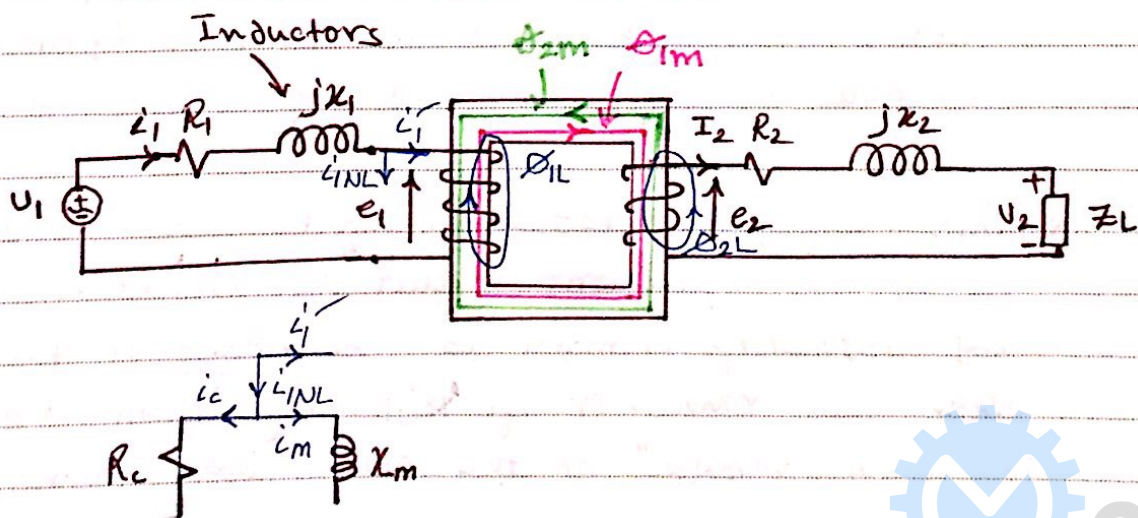 Inductors
ϕ2m ϕ1m
i1 R1 jx1 i1' I2 R2 jx2
i1NL ϕ1L
U1 e1 e2 + V2 - ZL
ϕ2L
i1'
ic i1NL
im
Rc Xm